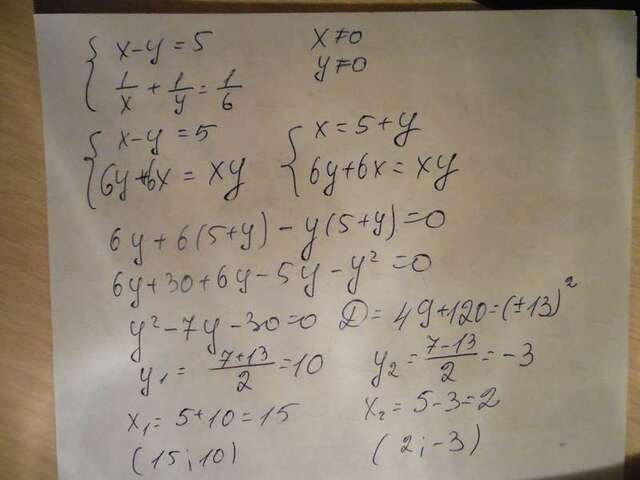 { x-y=5    x≠0
{ 1/x + 1/y = 1/6    y≠0
{ x-y=5    { x=5+y
{ 6y+6x = xy    { 6y+6x=xy
6y+6(5+y)-y(5+y)=0
6y+30+6y-5y-y²=0
y²-7y-30=0   D=49+120=(±13)²
y₁= (7+13)/2 =10    y₂= (7-13)/2 =-3
x₁=5+10=15    x₂=5-3=2
(15;10)    (2;-3)